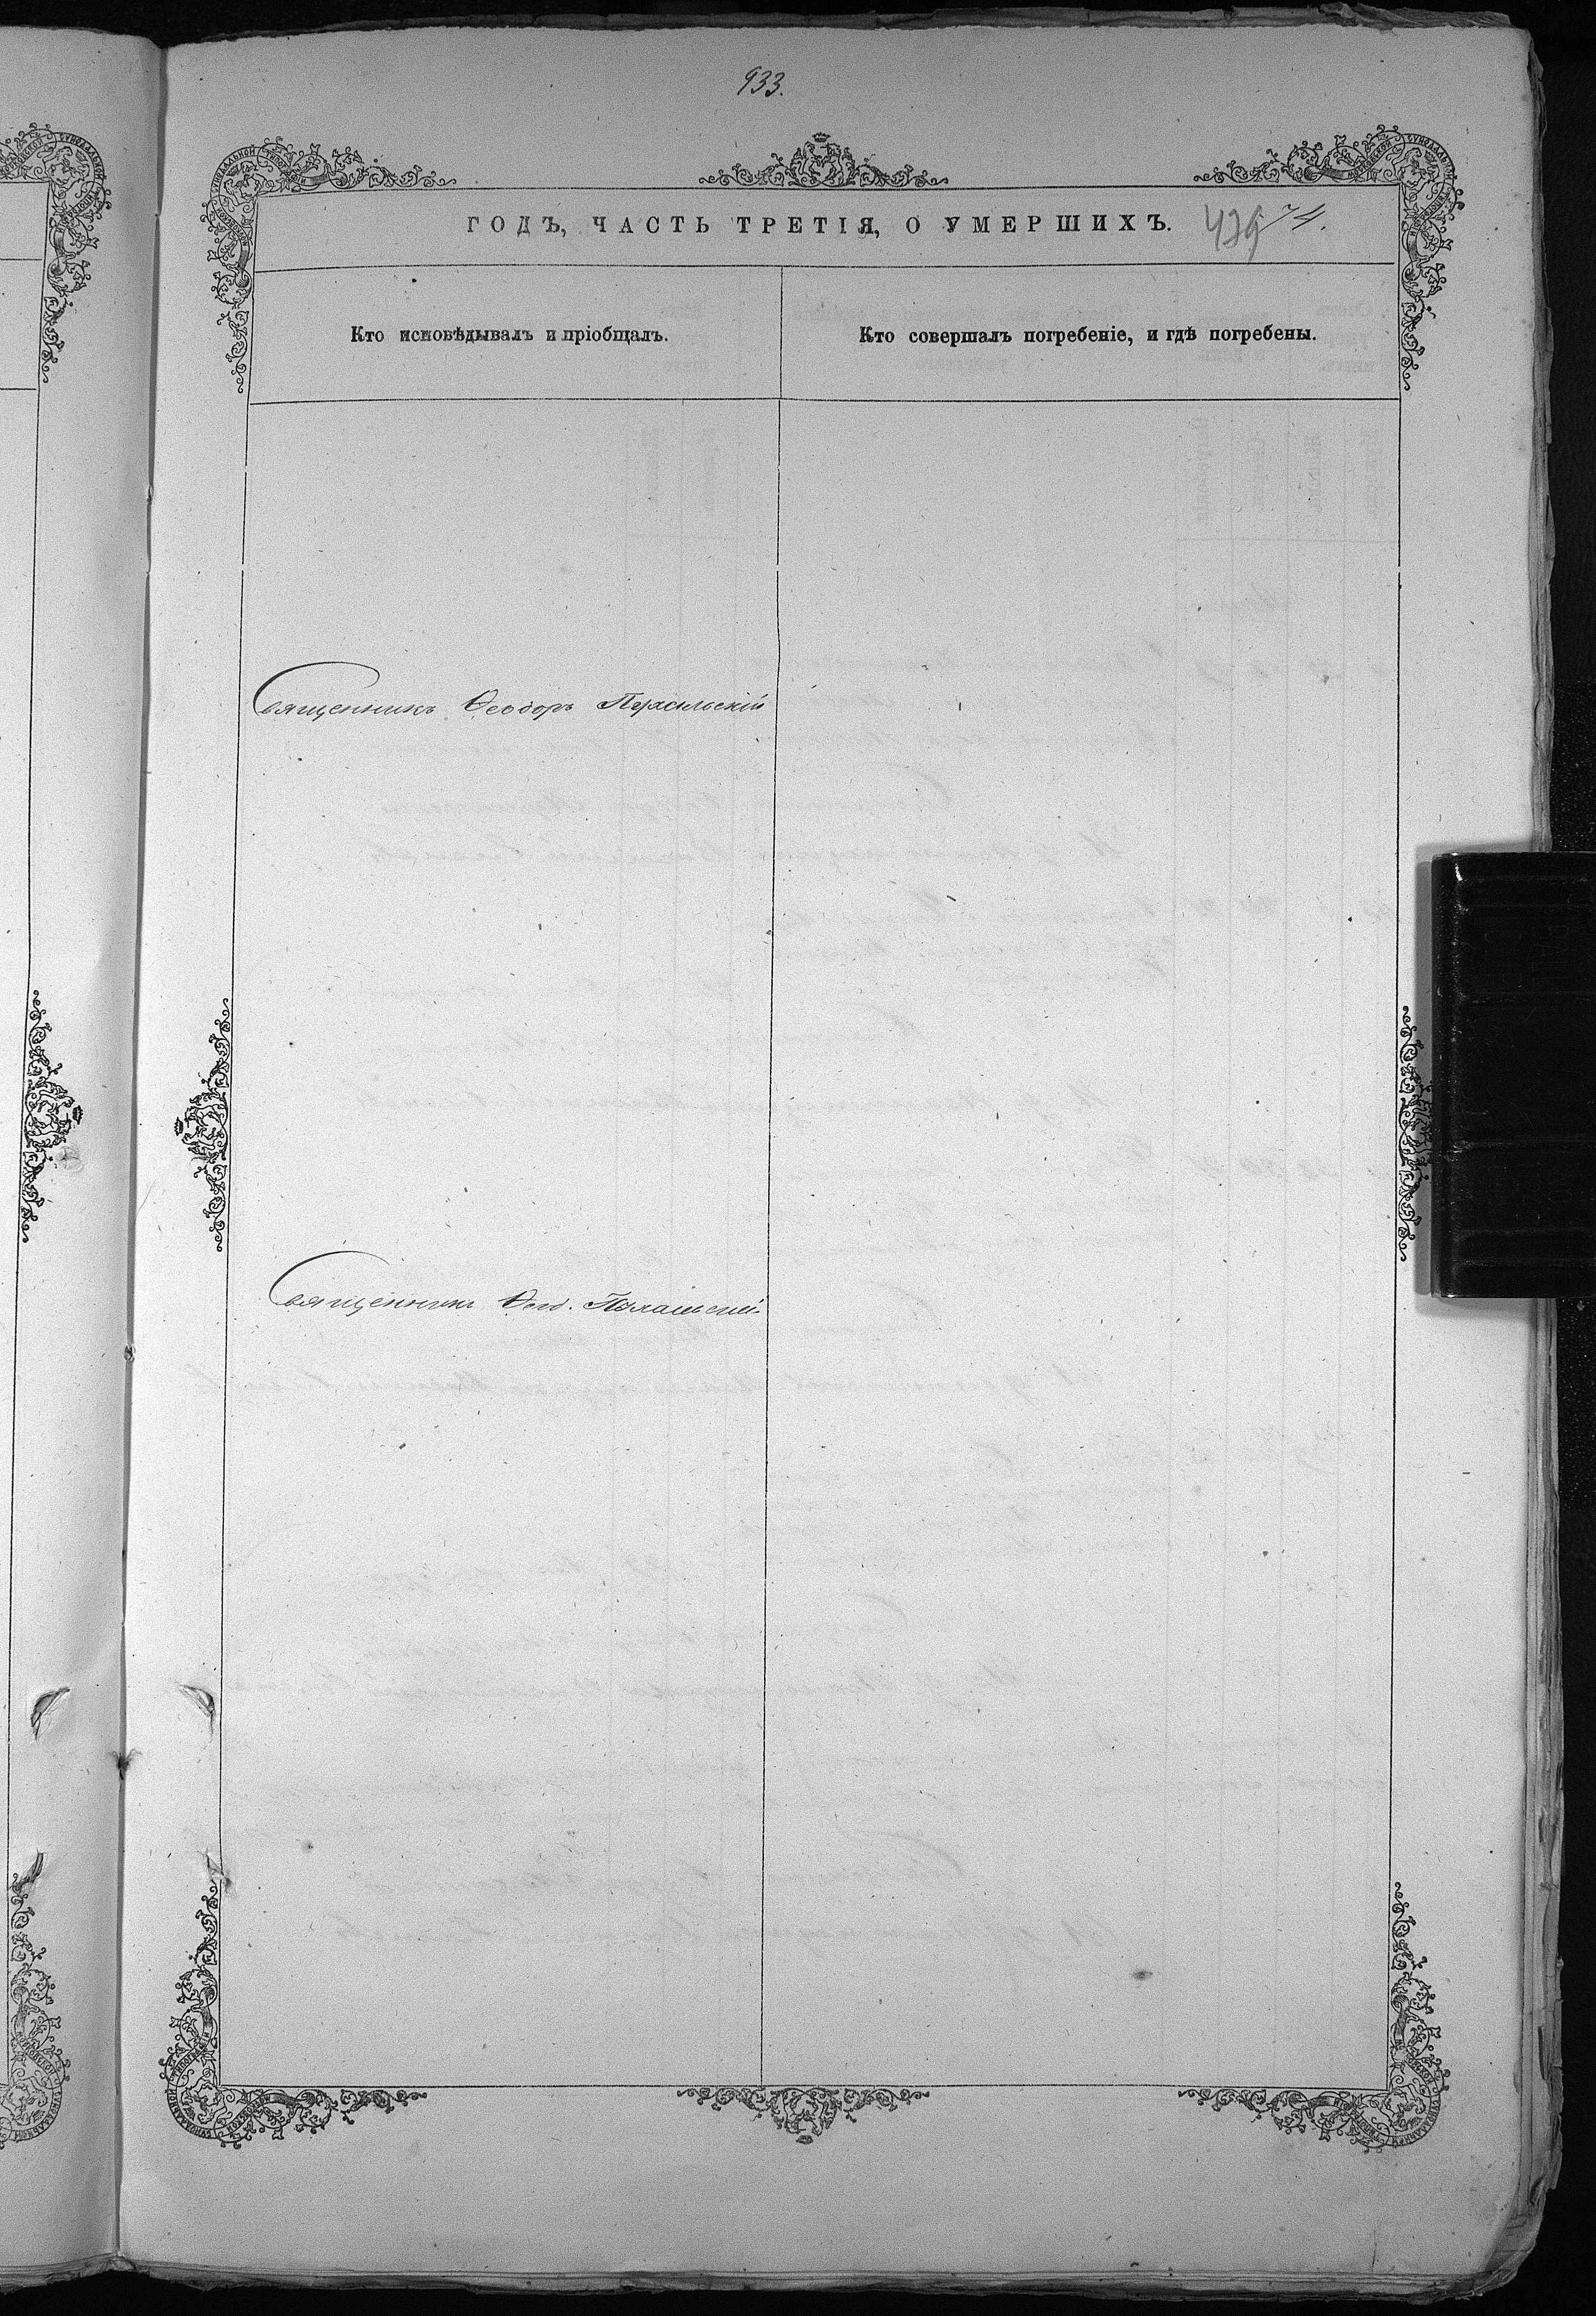 933.
ГОДЪ, ЧАСТЬ ТРЕТІЯ, О УМЕРШИХЪ.
439 74.
Кто исповѣдывалъ и пріобщалъ.
Кто совершалъ погребеніе, и гдѣ погребены.
Священникъ Ѳеодоръ
Священникъ Ѳеод.